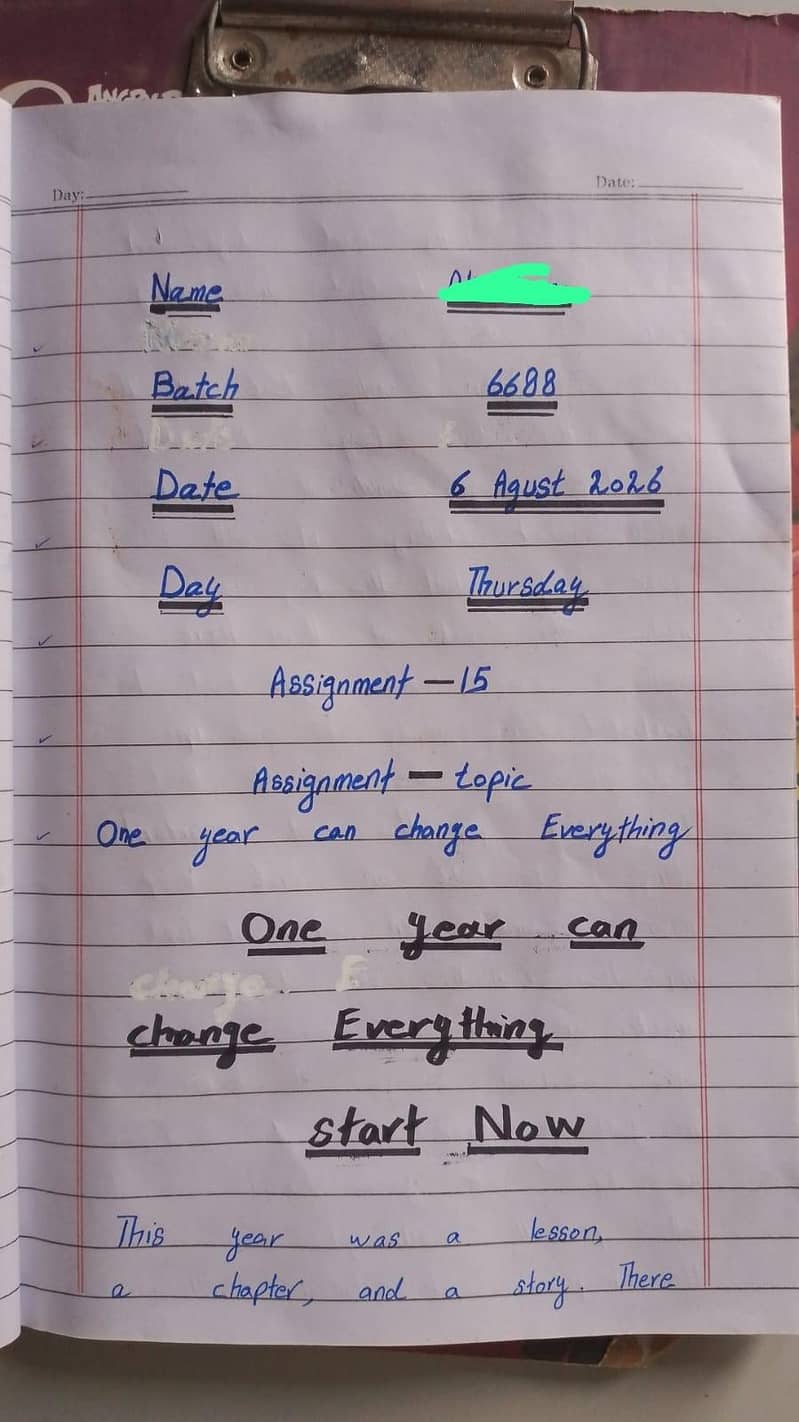 Day:
Date:
Name
Batch 6688
Date 6 Agust 2026
Day Thursday
Assignment — 15
Assignment — topic
One year can change Everything
One year can
change Everything
start Now
This year was a lesson,
a chapter, and a story. There